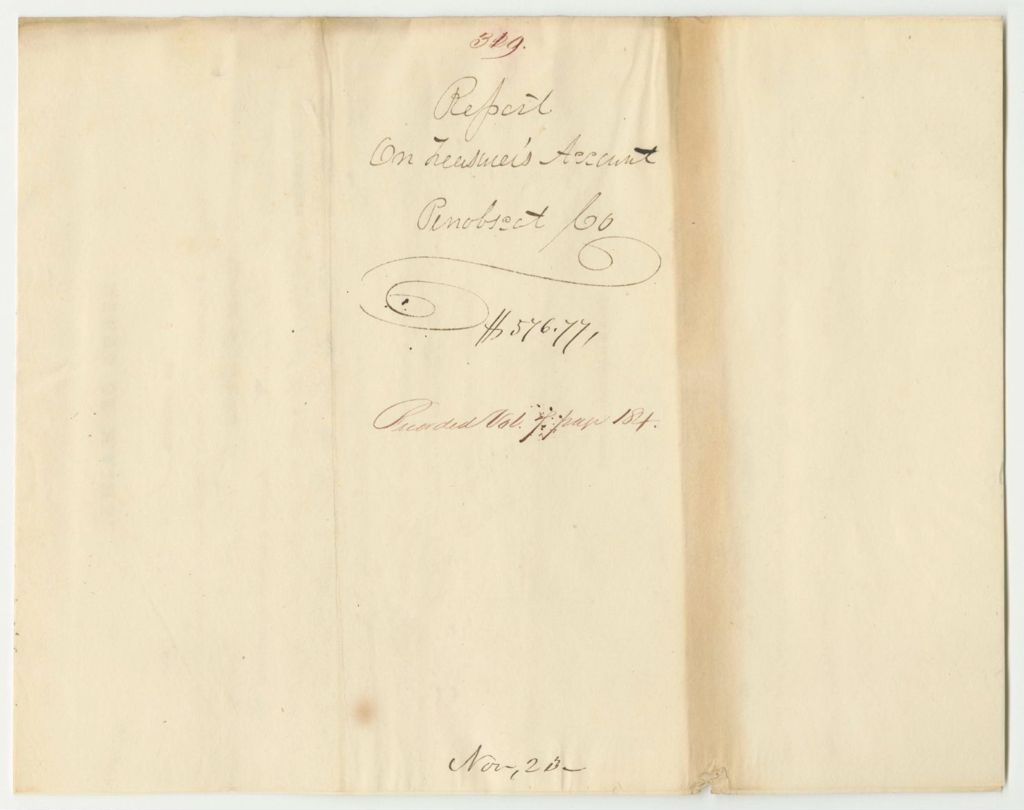 349.
Report
On Treasurer's Account
Penobscot Co
$576.77,
Recorded Vol. page 184.
Nov, 23